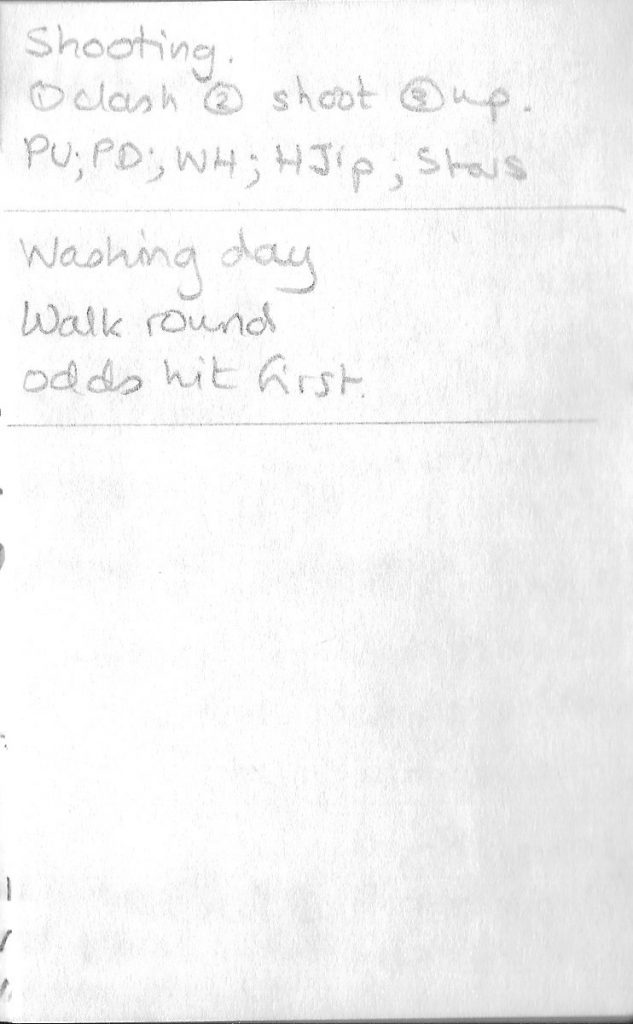 Shooting.
① clash ② shoot ③ up.
PU; PD; WH; HJip; Stars
Washing day
Walk round
odds hit first.